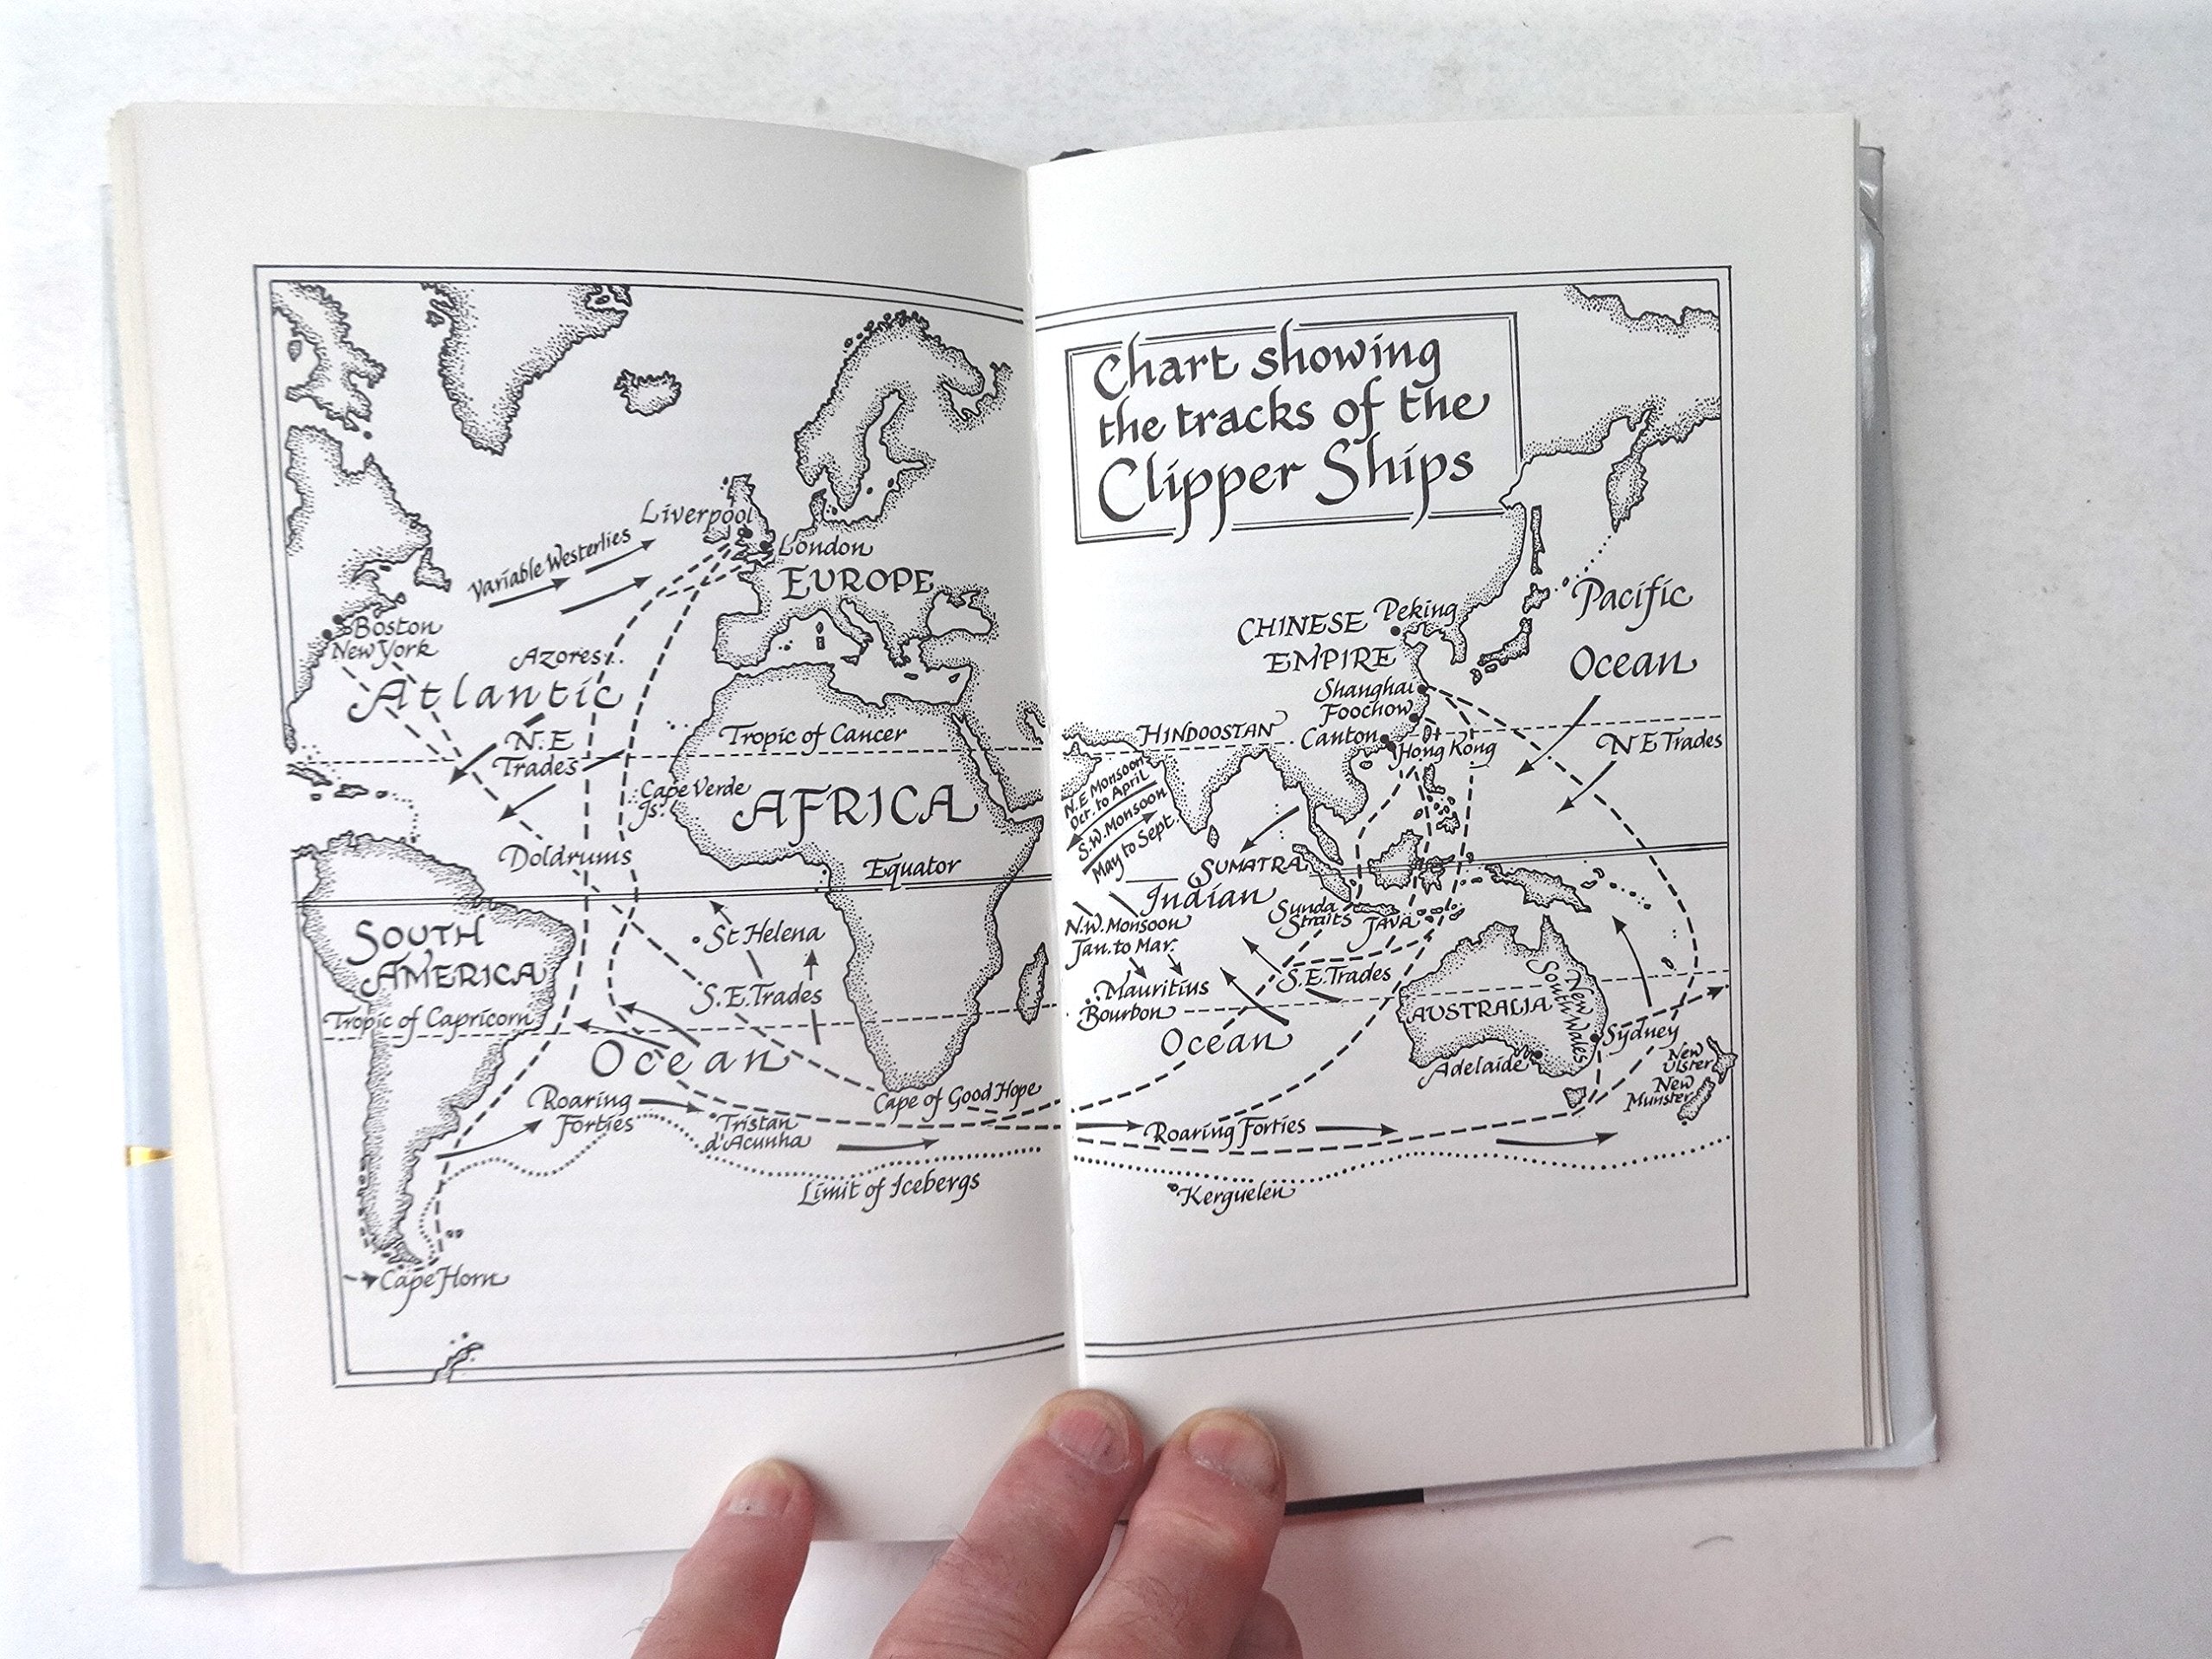 Chart showing
the tracks of the
Clipper Ships
Liverpool
London
Variable Westerlies
EUROPE
Boston
New York
Azores
Atlantic
N.E
Trades
Tropic of Cancer
Cape Verde
Is.
AFRICA
Doldrums
Equator
SOUTH
AMERICA
St Helena
S.E.Trades
Tropic of Capricorn
Ocean
Roaring
Forties
Cape of Good Hope
Tristan
d'Acunha
Limit of Icebergs
Cape Horn
Pacific
Ocean
CHINESE
EMPIRE
Peking
Shanghai
Foochow
HINDOOSTAN
Canton
Hong Kong
N E Trades
N.E Monsoon
Oct. to April
S.W. Monsoon
May to Sept.
SUMATRA
Indian
Sunda
Straits
JAVA
N.W. Monsoon
Jan. to Mar.
Mauritius
Bourbon
S.E.Trades
Ocean
AUSTRALIA
New
South Wales
Sydney
Adelaide
New
Ulster
New
Munster
Roaring Forties
Kerguelen